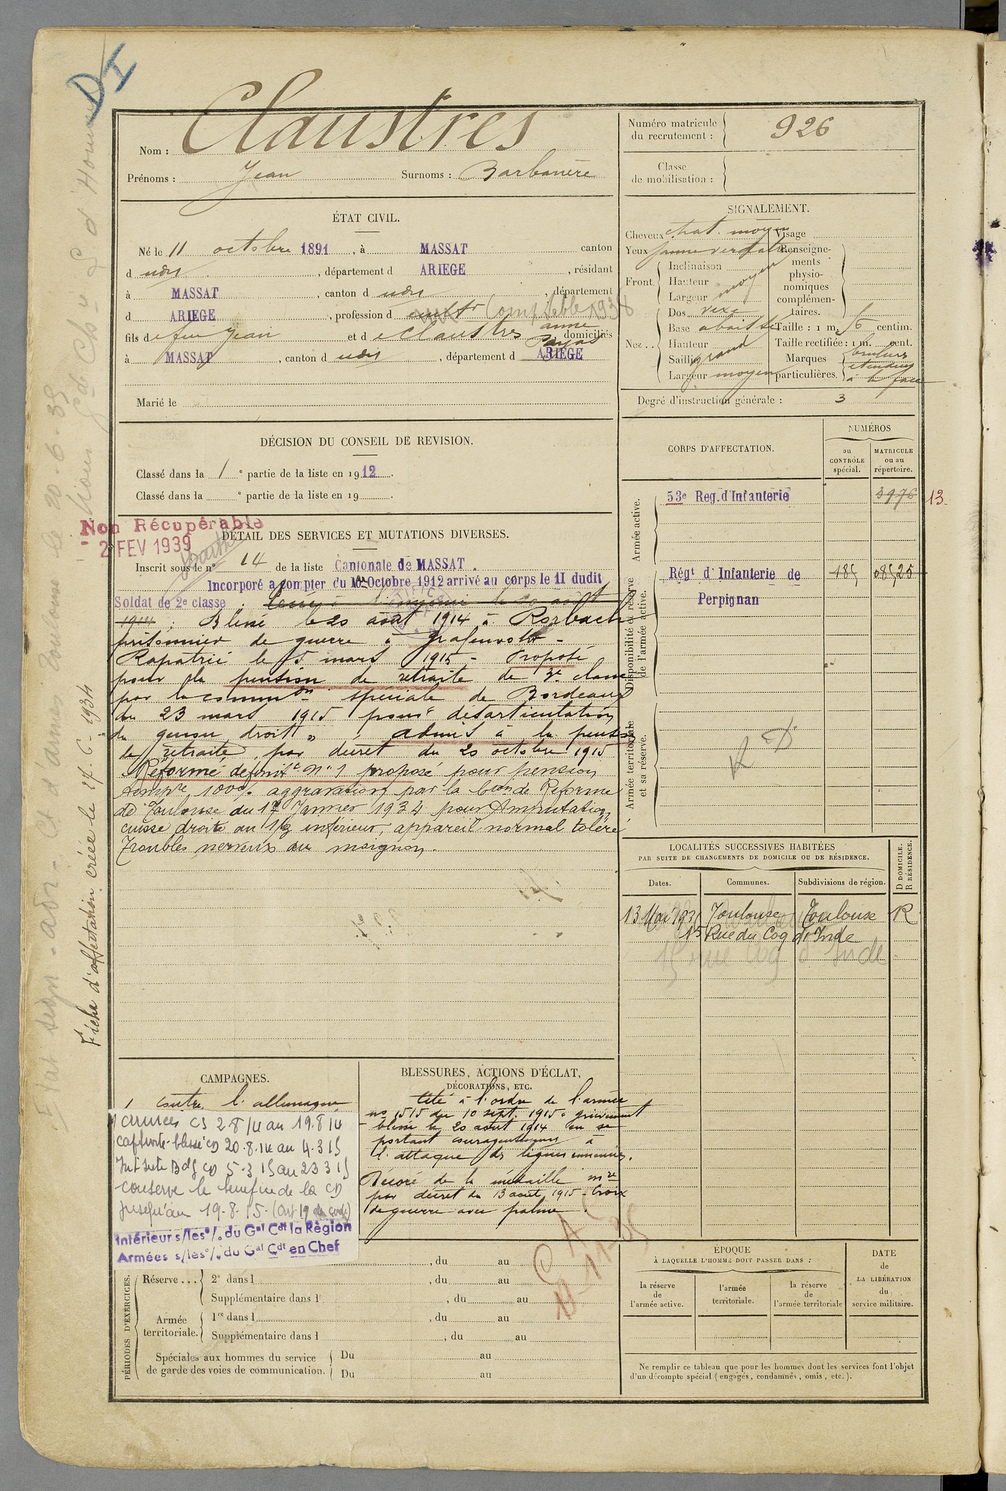 DI
Nom : Claustres
Prénoms : Jean Surnoms : Barbanère
Numéro matricule du recrutement : 926
Classe de mobilisation :
ÉTAT CIVIL.
Né le 11 octobre 1891, à MASSAT canton
d udit, département d ARIEGE, résidant
à MASSAT, canton d udit, département
d ARIEGE, profession d Comptable 1934
fils de feu Jean et de Claustres anne domiciliés
à MASSAT, canton d udit, département d ARIEGE
Marié le
DÉCISION DU CONSEIL DE REVISION.
Classé dans la 1e partie de la liste en 1912.
Classé dans la e partie de la liste en 19
Non Récupérable
2 FEV 1939
DÉTAIL DES SERVICES ET MUTATIONS DIVERSES.
Inscrit sous le n° 14 de la liste Cantonale de MASSAT.
Incorporé a compter du 10 Octobre 1912 arrivé au corps le 11 dudit
Soldat de 2e classe
1914. Blessé le 20 août 1914 à Rorbach
prisonnier de guerre à Grafenvohr -
Rapatrié le 5 mars 1915 - Proposé
pour la pension de retraite de 3e classe
par la common spéciale de Bordeaux
du 23 mars 1915 pour désarticulation
du genou droit ", admis à la pension
de retraite par décret du 20 octobre 1915
Réformé définitt n°1 proposé pour pension
tempre 100% aggravation par la Cion de Réforme
de Toulouse du 17 Janvier 1934 pour Amputation
cuisse droite au 1/3 inférieur, appareil normal toléré
Troubles nerveux du moignon.
Fiche d'affectation créée le 27-6-1934
SIGNALEMENT.
Cheveux chat. moyen Visage
Yeux jaune verdatre Renseignements physionomiques complémentaires.
Front. Inclinaison
Hauteur moyen
Largeur
Nez. Dos rexe
Base abaissée Taille : 1 m. 56 centim.
Hauteur Taille rectifiée : 1 m. cent.
Saillie grand Marques particulières.
Largeur moyen
étendues
à la face
Degré d'instruction générale : 3
CORPS D'AFFECTATION.
NUMÉROS
du CONTRÔLE spécial.
MATRICULE ou au répertoire.
Armée active.
53e Reg. d'Infanterie 3976 13
Disponibilité et réserve de l'armée active.
Régt d'Infanterie de 185 08525
Perpignan
Armée territoriale et sa réserve.
R D
LOCALITÉS SUCCESSIVES HABITÉES
PAR SUITE DE CHANGEMENTS DE DOMICILE OU DE RÉSIDENCE.
D DOMICILE. R RÉSIDENCE.
Dates. Communes. Subdivisions de région.
13 Mai 1935 Toulouse Toulouse R
15 Rue du Coq d'Inde
15 rue Coq d'Inde
CAMPAGNES.
contre l'allemagne
armées CS 2-8-14 au 19-8-14
captivité-blessé CD 20-8-14 au 4-3-15
Intérieur Bds CD 5-3-15 au 23 3 15
conserve le bénéfice de la CD
jusqu'au 19-8-15-(art 19 du code)
Intérieur s/les o/. du Gal Cdt la Région
Armées s/les o/. du Gal Cdt en Chef
BLESSURES, ACTIONS D'ÉCLAT, DÉCORATIONS, ETC.
Cité à l'ordre de l'armée
no 515 du 10 sept. 1915 "grièvement
blessé le 20 août 1914 en se
portant courageusement à
l'attaque des lignes ennemies.
Décoré de la médaille mre
par décret du 13 août 1915 - Croix
de guerre avec palme.
C A C
11-95
PÉRIODES D'EXERCICES.
, du au
Réserve... 2e dans l , du au
Supplémentaire dans l , du au
Armée territoriale. 1re dans l , du au
Supplémentaire dans l , du au
Spéciales aux hommes du service de garde des voies de communication. Du au
Du au
ÉPOQUE
À LAQUELLE L'HOMME DOIT PASSER DANS :
la réserve de l'armée active.
l'armée territoriale.
la réserve de l'armée territoriale
DATE de LA LIBÉRATION du service militaire.
Ne remplir ce tableau que pour les hommes dont les services font l'objet
d'un décompte spécial (engagés, condamnés, omis, etc.).